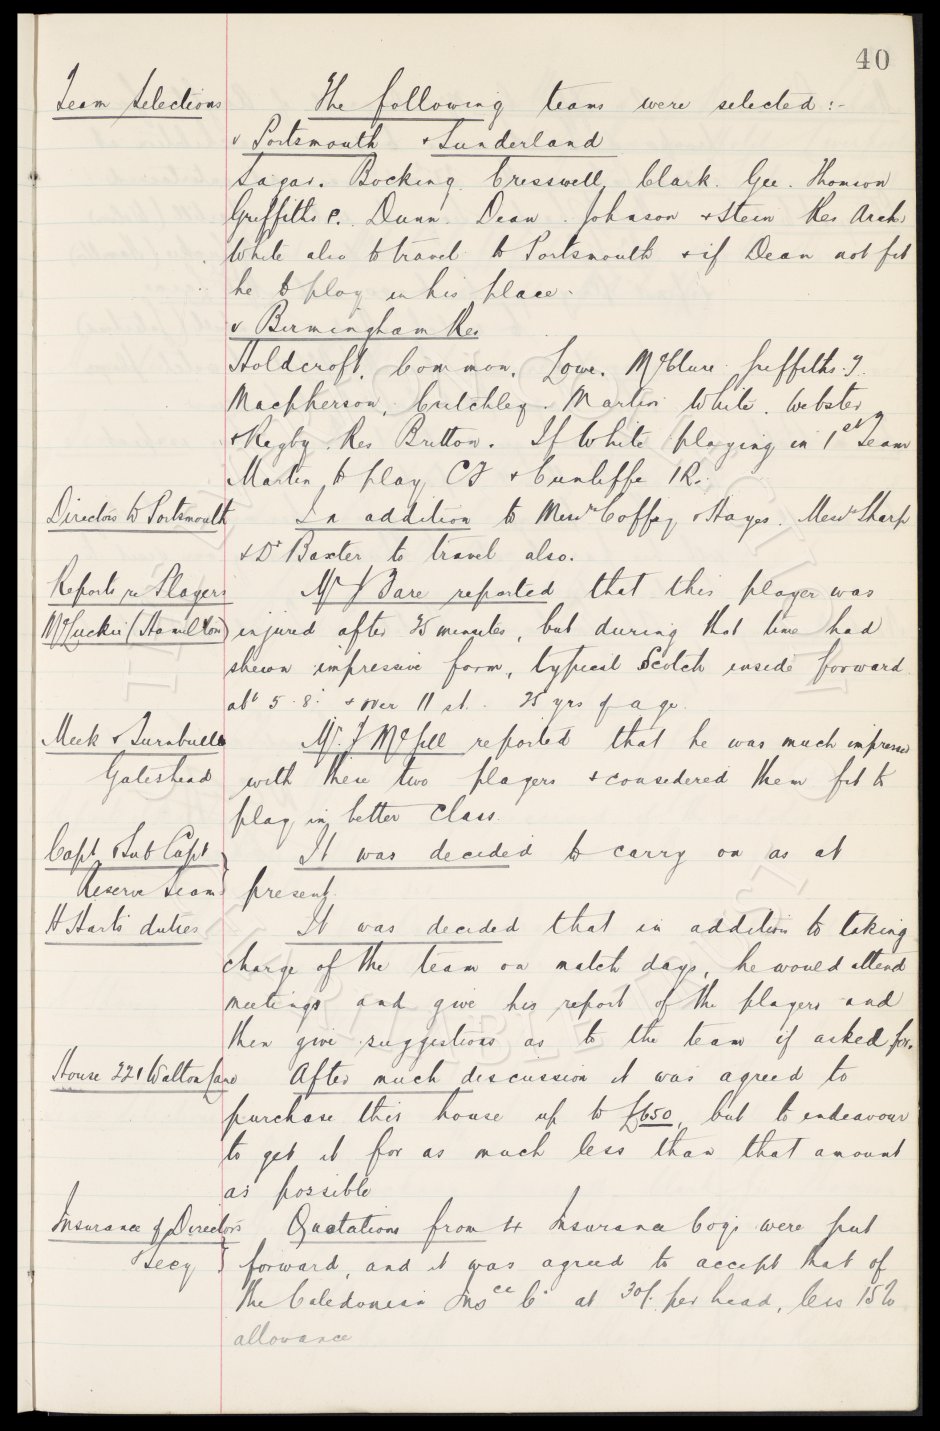 40
Team Selections The following teams were selected :-
v Portsmouth + Sunderland
Sagar. Bocking. Cresswell, Clark. Gee. Thomson
Griffiths P. Dunn. Dean. Johnson + Stein Res Arch.
White also to travel to Portsmouth + if Dean not fit
he to play in his place.
v Birmingham Res
Holdcroft, Common, Lowe, McClure. Griffiths. T.
Macpherson, Critchley. Martin White. Webster
+ Rigby. Res Britton. If White playing in 1st Team
Martin to play CF + Cunliffe IR.
Directors to Portsmouth In addition to Messrs Coffey + Hayes. Messrs Sharp
+ Dr Baxter to travel also.
Reports re Players Mr J Fare reported that this player was
McLuckie (Hamilton) injured after 35 minutes, but during that time had
shewn impressive form, typical Scotch inside forward
abt 5. 8. + over 11 st. 25 yrs of age.
Meek + Turnbull Mr. J McGill reported that he was much impressed
Gateshead with these two players + considered them fit to
play in better class.
Capt + Sub Capt It was decided to carry on as at
Reserve Team present.
H Harts duties It was decided that in addition to taking
charge of the team on match days, he would attend
meetings and give his report of the players and
then give suggestions as to the team if asked for.
House 221 Walton Lane After much discussion it was agreed to
purchase this house up to £650, but to endeavour
to get it for as much less than that amount
as possible
Insurance of Directors Quotations from 4 Insurance Coys were put
+ Secy forward, and it was agreed to accept that of
the Caledonian Insce Co at 30/. per head, less 15%
allowance